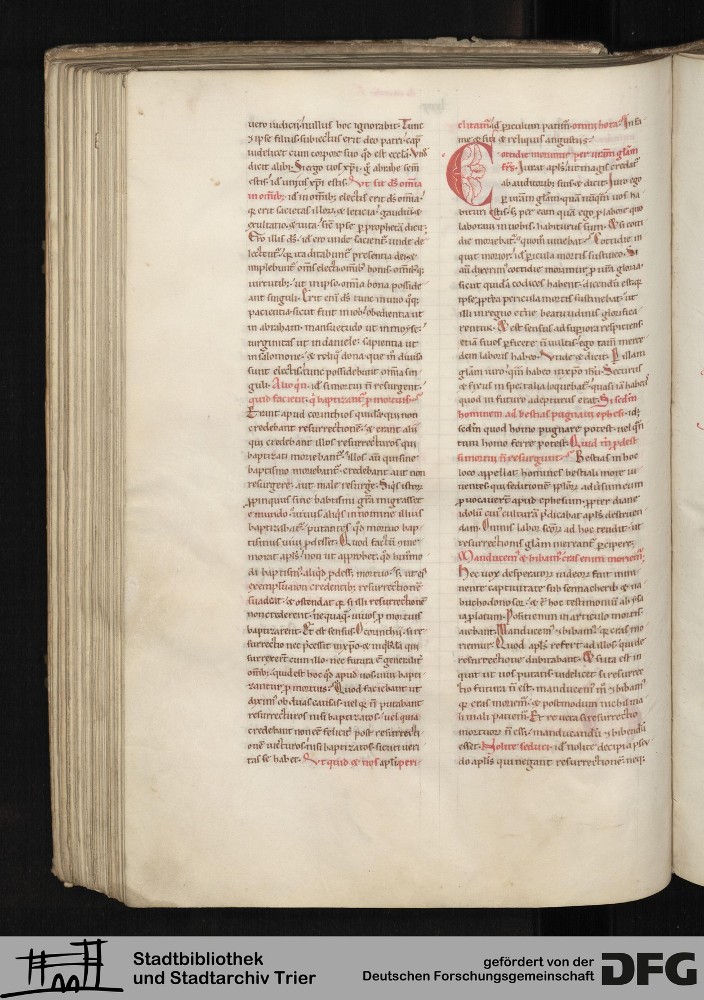 uero iudicii nullus hoc ignorabit. Tunc
& ipse filius subiectus erit deo patri. cap̄
uidelicet cum corpore suo qd̄ est eccl̄a. Vnd̄
dicit alibi. Si ergo uos xp̄i. g̊ abrahę sem̄
estis. id̄ utiq; xp̄i estis. Vt sit ds̄ omīa
in omīb; id̄ in omīb; electis erit ds̄ om̄a.
& uita. sic̄ ipse p̱ prophetā dicit.
Ero illis ds̄. id̄ ero unde sacient̄ unde de
lectent̄.
implebunt̄ om̄s electi omīb; bonis omīq;
uirtutib; ut in ipso om̄a bona posside
ant singuli. Erit eni ds̄ tunc in uno q̄q;
pacientia sicut fuit in iob. obedientia ut
in abraham. mansuetudo ut in moyse.
uirginitas ut in daniele. sapientia ut
in salomone. & reliq̄ dona que m̊ diuisa
sunt electis tunc possidebunt om̄a sin
guli. Alioq̄n. id̄ si mortui n̄ resurgent.
quid facient. q̇ baptizant̄ p̱ mortuis.
Erant apud corinthios quidā qui non
credebant resurrectionē. & erant alii
qui credebant illos resurrecturos qui
baptizati moriebant̄. illos aū qui sine
baptismo moriebant̄. credebant aut non
resurgere. aut male resurgę. Siq̇s istor̄
p̱pinquus sine baptismi gr̄a migrasset
e mundo. uiuus aliq̇s in nomine illius
baptizabat̄. putantes qd̄ mortuo bap
tismus uiui p̱desset. Quod factū c̄me
morat apl̄s. non ut approbet. qd̄ huism̊
di baptismū aliqd̄ p̱desset mortuo. s; ut
exemplū a non credentib; resurrectionē
suadeat. & ostendat q̇a si illi resurrectionē
non crederent. nequaq̄ uiui p̱ mortuis
baptizarent̄. Et est sensus. O corinthii. si re
surrectio nec p̱cessit in xp̄o. & in qbusdā qui
surrexer̄ cum illo. nec futura ē generalit̄
omīb;. quid est hoc qd̄ apud uos uiui bapti
zantur p̱ mortuis. Quod faciebant ut
diximus ob duas causas. uel quia n̄ putabant
resurrecturos nisi baptizatos. uel quia
credebant non ēē felicit̄ post resurrecti
onē uicturos. nisi baptizatos. sicuti ueri
tas se habet. Vt quid & nos apl̄i peri
clitam̄. id̄ periculum patim̄. omni hora. In fa
me & siti & reliquis angustiis.
Cotidie morimur per uram glam
frs̄. Iurat apl̄s. ut magis credat̄
ab auditorib; suis. & dicit. Iuro ego
p̱ urām glam. quā
bituri estis. s; per eam quā ego p̱ labore quo
laboraui in uobis. habiturus sum. qa si coti
die moriebat̄. quom̊ uiuebat. Cotidie in
quit morior. id̄ p̱icula mortis sustineo. Si
aū dixerim cotidie morimur p̱ urām gloriā.
sicut quidā codices habent. dicendū est. q̇a
ipse p̱pt̄ea pericula mortis sustinebat. ut
illi in regno ęternę beatitudinis glorifica
rentur. Et est sensus ad supiora respiciens.
etiā si uos p̱ficere n̄ uultis. ego tam̄ merce
dem laboris habeo. Vnde & dicit. P̱ illam
glam uram. qm̄ habeo in xp̄o ihū. Securus
& fixus in spe. talia loquebat̄. quasi iā haberet
quod in futuro adepturus erat. Si sedm̄
hominem ad bestias pugnaui ephesi. id̄
sedm̄ quod homo pugnare potest. uel q̄n
tum homo ferre potest. Quid m̊ p̱dest
si mortui n̄ resurgunt. Bestias in hoc
loco appellat homines bestiali more ui
uentes. qui seditionē ipsor̄ aduersum eum
p̱uocauerē apud ephesum. p̱pter diane
idolū. cuius culturā p̱dicabat apl̄s destruen
dam. Omnis labor scōr̄ ad hoc tendit. ut
resurrectionis glam mereant̄ p̱cipere.
Manducem̄ & bibam̄. cras enim moriem̄.
Hec uox desperatorū iudeor̄ fuit immi
nente captiuitate sub sennacherib & na
buchodonosor. & ē hoc testimoniū ab ysa
ia p̱latum. Positi enim in articulo mortis
aiebant. Manducem̄ & bibam̄. q̇a cras mo
riemur. Quod apl̄s refert ad illos. qui de
resurrectione dubitabant. Et ē sententia. Si ita est in
quit ut uos putatis. uidelicet si resurrec
tio futura n̄ est. manducem̄ m̊ & bibam̄
q̇a cras moriem̄. & postmodum nichil ma
li mali patiem̄. Et re uera si resurrectio
mortuor̄ n̄ esset. manducandū & bibendū
esset. Nolite seduci. id̄ nolite decipi a pseu
do apl̄is qui negant resurrectionē. neq;
Stadtbibliothek
und Stadtarchiv Trier
gefördert von der
Deutschen Forschungsgemeinschaft
DFG